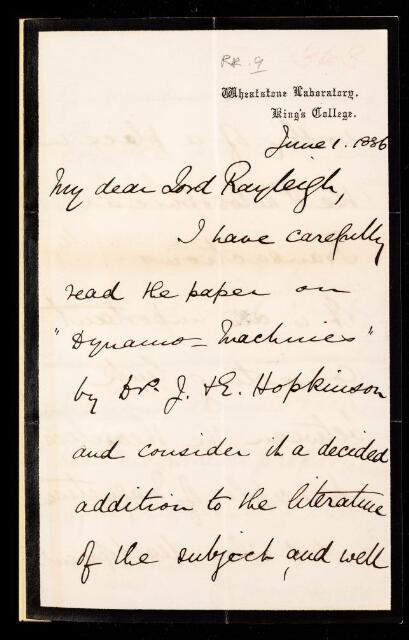 RR. 9
368
Wheatstone Laboratory.
King's College.
June 1. 1886
My dear Lord Rayleigh,
I have carefully
read the paper on
"Dynamo-Machines"
by Drs. J. & E. Hopkinson
and consider it a decided
addition to the literature
of the subject, and well